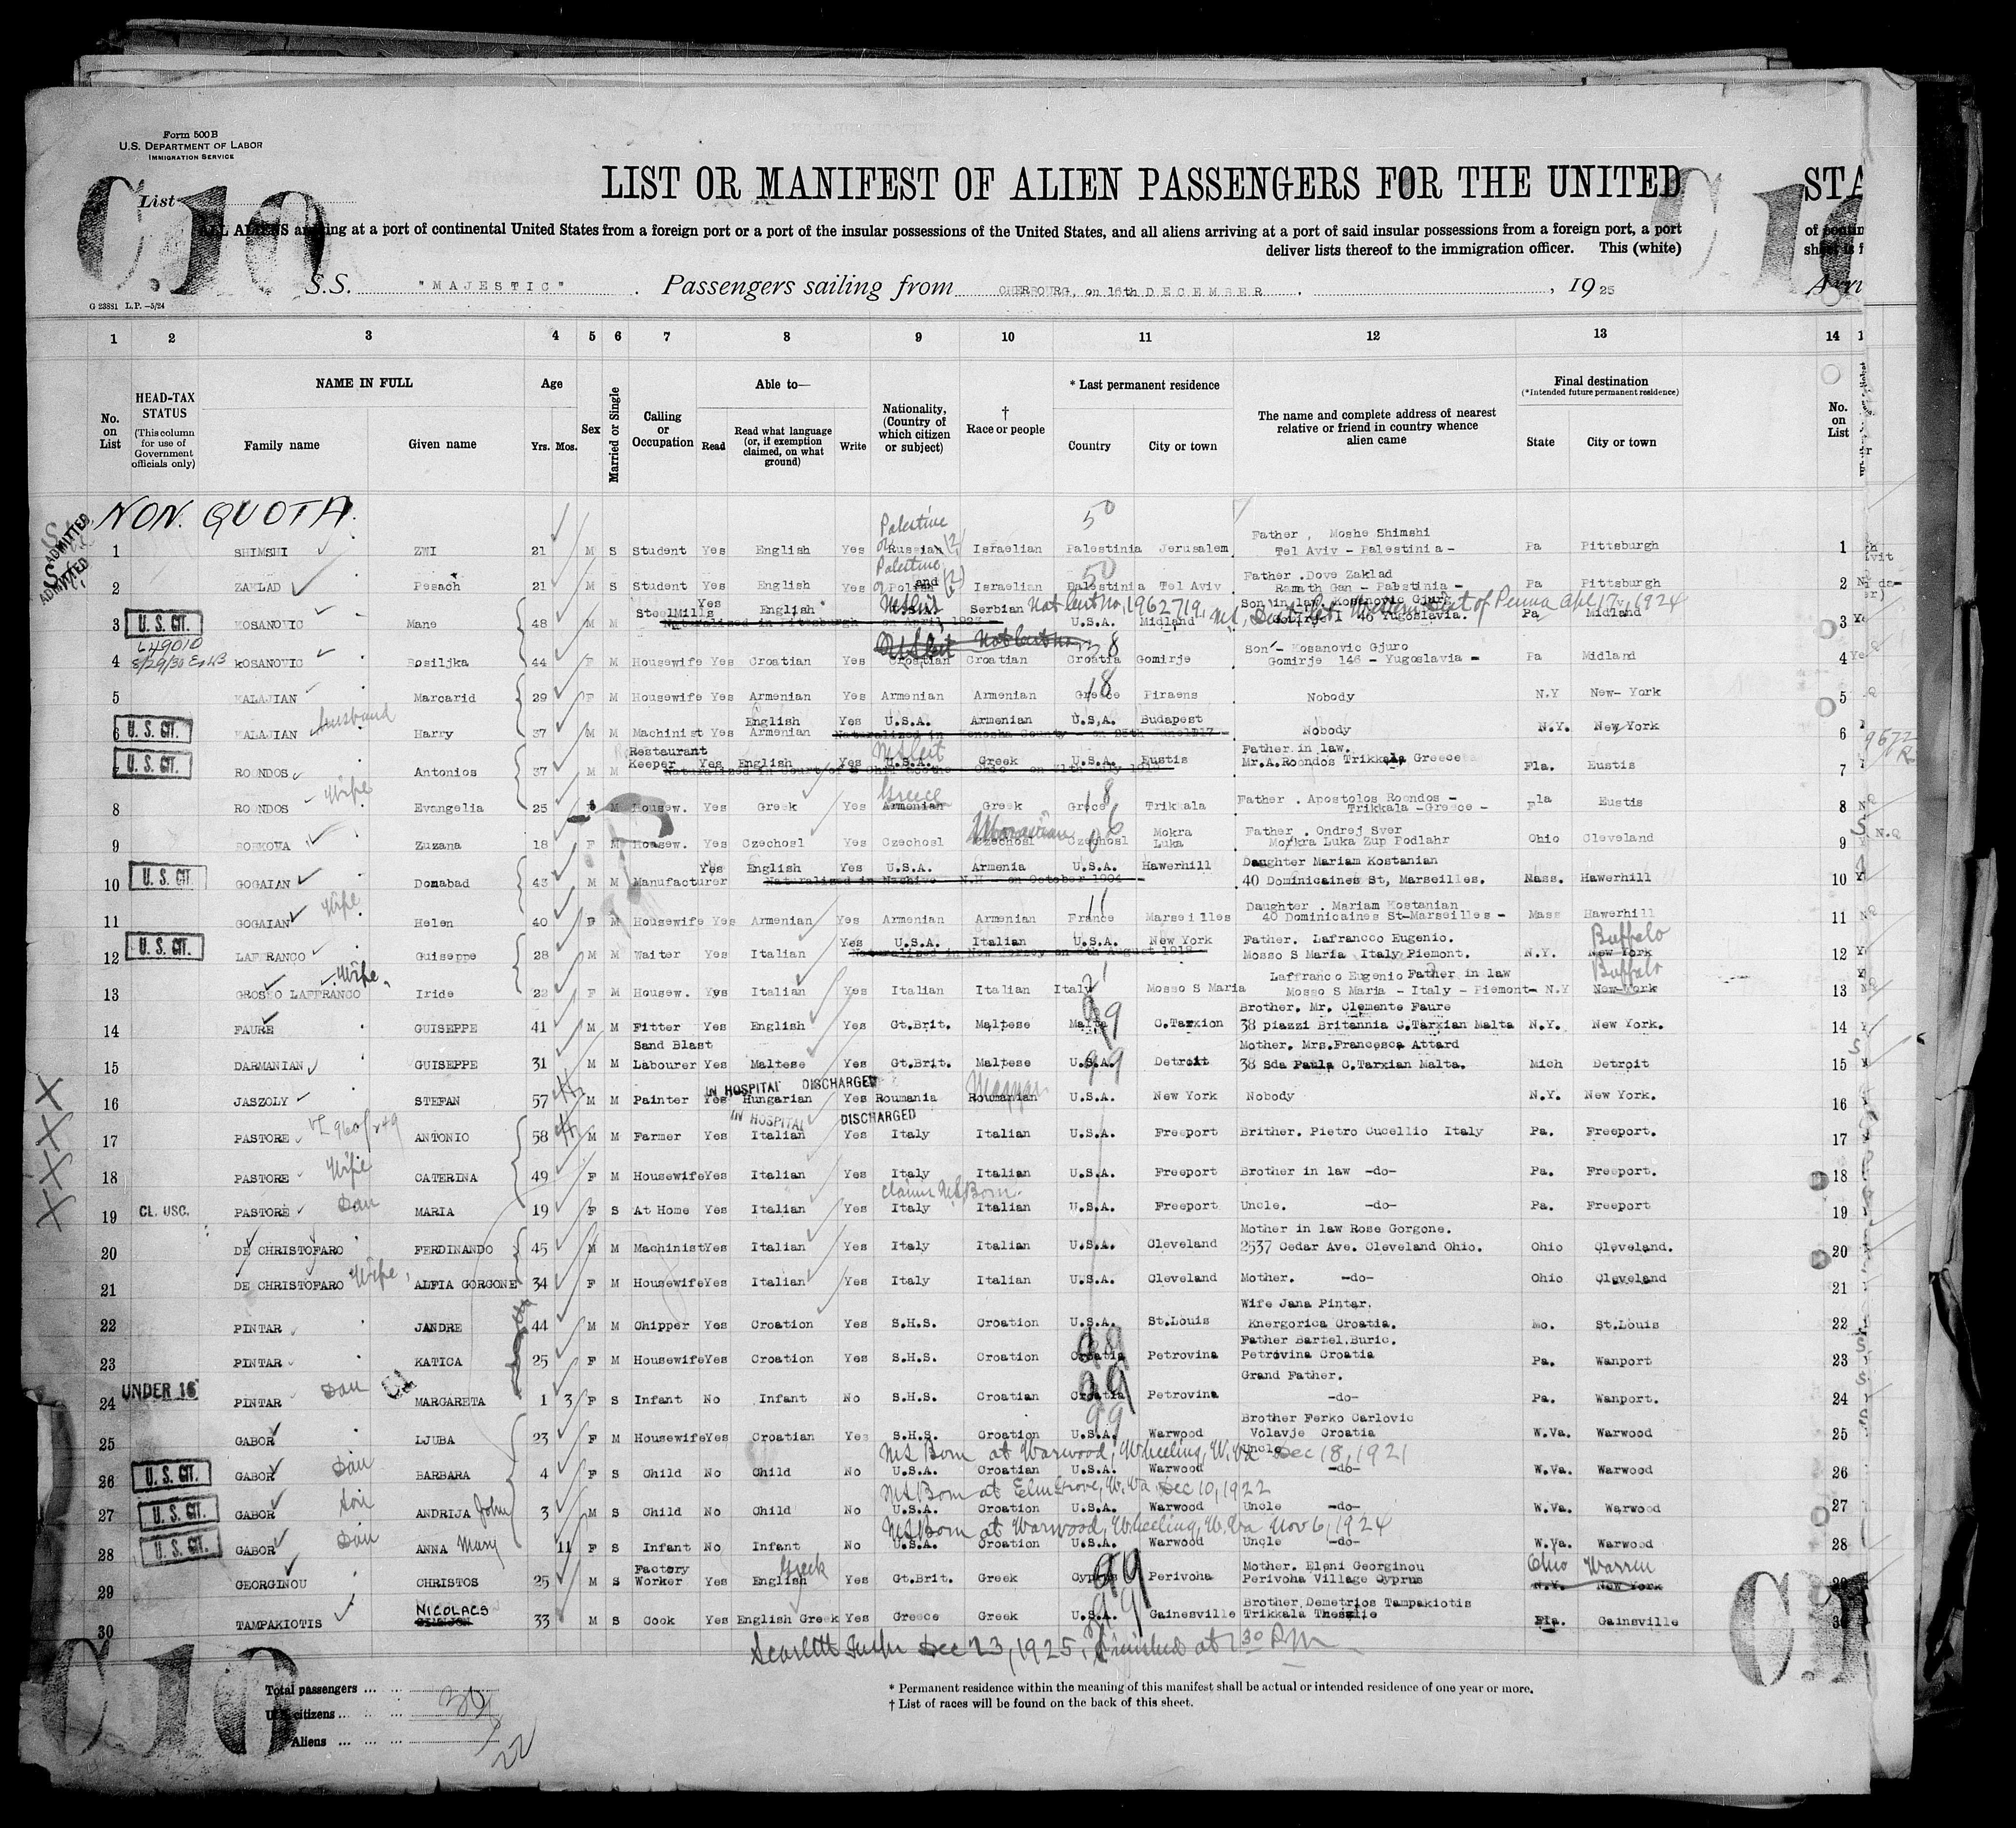 Form 500 B
U.S. DEPARTMENT OF LABOR
IMMIGRATION SERVICE
List
C.10
C.10
LIST OR MANIFEST OF ALIEN PASSENGERS FOR THE UNITED STA
ALL ALIENS arriving at a port of continental United States from a foreign port or a port of the insular possessions of the United States, and all aliens arriving at a port of said insular possessions from a foreign port, a port
deliver lists thereof to the immigration officer. This (white)
S.S. "MAJESTIC" . Passengers sailing from CHERBOURG, on 16th DECEMBER . , 1925
G 23881 L.P. —5/24
1 2 3 4 5 6 7 8 9 10 11 12 13 14
No. on List
HEAD-TAX STATUS (This column for use of Government officials only)
NAME IN FULL
Family name Given name
Age
Yrs. Mos.
Sex
Married or Single
Calling or Occupation
Able to—
Read Read what language (or, if exemption claimed, on what ground) Write
Nationality, (Country of which citizen or subject)
† Race or people
* Last permanent residence
Country City or town
The name and complete address of nearest relative or friend in country whence alien came
Final destination
(*Intended future permanent residence)
State City or town
No. on List
NON. QUOTA.
ADMITTED
ADMITTED
Palestine 50 Father , Moshe Shimshi
1 SHIMSHI ZWI 21 M S Student Yes English Yes Russian Israelian Palestinia Jerusalem Tel Aviv - Palestinia - Pa Pittsburgh 1
Palestine 50 Father .Dove Zaklad
2 ZAKLAD Pesach 21 M S Student Yes English Yes Polish Israelian Palestinia Tel Aviv Ramath Gan - Palstinia - Pa Pittsburgh 2
U. S. CIT. Steel Mills Yes English Serbian Nat Cert No, 1962719, Son in law Kosanovic Gjuro Western Dist of Penna Apl 17, 1924
3 KOSANOVIC Mane 48 M M Naturalized in Pittsburgh on April 1923 - U.S.A. Midland Gomirje 146 Yugoslavia. Pa Midland 3
649010
US Cit Nat Cert no 38 Son - Kosanovic Gjuro
4 KOSANOVIC Rosiljka 44 F M Housewife Yes Croatian Yes Croatian Croatian Croatia Gomirje Gomirje 146 - Yugoslavia - Pa Midland 4
5 KALAJIAN Marcarid 29 F M Housewife Yes Armenian Yes Armenian Armenian Greece 18 Piraens Nobody N.Y New-York 5
U. S. CIT. Husband English Yes U.S.A. Armenian U.S.A. Budapest
6 KALAJIAN Harry 37 M M Machinist Yes Armenian Naturalized in Kenosha County - on 25th June1917 - Nobody N.Y. New York 6
U. S. CIT. Restaurant US Cit Father in law.
7 ROONDOS Antonios 37 M M Keeper Yes English Yes U.S.A. Greek U.S.A. Eustis Mr.A.Roondos Trikkala Greece Fla. Eustis 7
Wife Greece 18 Father . Apostolos Roondos -
8 ROONDOS Evangelia 25 F M Housew. Yes Greek Yes Armenian Greek Grece Trikkala Trikkala -Greece - Fla Eustis 8
Moravian Mokra Father . Ondrej Sver
9 BOBKOWA Zuzana 18 F M Housew. Yes Czechosl Yes Czechosl Czechosl Czechosl Luka Mokra Luka Zup Podlahr Ohio Cleveland 9
U. S. CIT. Yes English Yes U.S.A. Armenia U.S.A. Hawerhill Daughter Mariam Kostanian
10 GOGAIAN Donabad 43 M M Manufacturer Naturalized in N.H - on October 1904 - 40 Dominicaines St, Marseilles. Mass. Hawerhill 10
Wife 11 Daughter . Mariam Kostanian
11 GOGAIAN Helen 40 F M Housewife Yes Armenian Yes Armenian Armenian France Marseilles 40 Dominicaines St-Marseilles - Mass Hawerhill 11
U. S. CIT. Yes U.S.A. Italian U.S.A. New York Father. Lafrancco Eugenio. Buffalo
12 LAFFRANCO Guiseppe 28 M M Waiter Yes Italian Naturalized in New Jersey on 8th August 1918 - Mosso S Maria Italy Piemont. N.Y. New York 12
Wife. Laffranco Eugenio Father in law Buffalo
13 GROSSO LAFFRANCO Iride 22 F M Housew. Yes Italian Yes Italian Italian Italy Mosso S Maria Mosso S Maria - Italy - Piemont- N.Y New-York 13
Brother. Mr. Clemente Faure
14 FAURE GUISEPPE 41 M M Fitter Yes English Yes Gt.Brit. Maltese Malta 99 C.Tarxion 38 piazzi Britannia C.Tarxian Malta N.Y. New York. 14
Sand Blast Mother. Mrs.Francesca Attard
15 DARMANIAN GUISEPPE 31 M M Labourer Yes Maltese Yes Gt.Brit. Maltese U.S.A. 99 Detroit 38 Sda Paula C.Tarxian Malta. Mich Detroit 15
IN HOSPITAL DISCHARGED Magyar
16 JASZOLY STEFAN 57 M M Painter Yes Hungarian Yes Roumania Roumanian U.S.A. New York Nobody N.Y. New York. 16
IN HOSPITAL DISCHARGED
17 PASTORE ANTONIO 58 M M Farmer Yes Italian Yes Italy Italian U.S.A. Freeport Brither. Pietro Cucellio Italy Pa. Freeport. 17
Wife
18 PASTORE CATERINA 49 F M Housewife Yes Italian Yes Italy Italian U.S.A. Freeport Brother in law -do- Pa. Freeport. 18
Dau claims US Born.
19 CL. USC. PASTORE MARIA 19 F S At Home Yes Italian Yes Italy Italian U.S.A. Freeport Uncle. -do- Pa. Freeport 19
Mother in law Rose Gorgone.
20 DE CHRISTOFARO FERDINANDO 45 M M Machinist Yes Italian Yes Italy Italian U.S.A. Cleveland 2537 Cedar Ave. Cleveland Ohio. Ohio Cleveland. 20
Wife,
21 DE CHRISTOFARO ALFIA GORGONE 34 F M Housewife Yes Italian Yes Italy Italian U.S.A. Cleveland Mother. -do- Ohio Cleveland 21
Wife Jana Pintar.
22 PINTAR JANDRE 44 M M Chipper Yes Croation Yes S.H.S. Croation U.S.A. St.Louis Knergorica Croatia. Mo. St.Louis 22
99 Father Bartel.Buric.
23 PINTAR KATICA 25 F M Housewife Yes Croation Yes S.H.S. Croation Croatia Petrovina Petrovina Croatia Pa. Wanport 23
UNDER 16 Dau 99 Grand Father.
24 PINTAR MARGARETA 1 3 F S Infant No Infant No S.H.S. Croatian Croatia Petrovina -do- Pa. Wanport. 24
99 Brother Ferko Carlovic
25 GABOR LJUBA 23 F M Housewife Yes Croatian Yes S.H.S. Croation U.S.A. Warwood Volavje Croatia W.Va. Warwood 25
U. S. CIT. Dau US Born at Warwood, Wheeling, W.Va Dec 18, 1921 Uncle
26 GABOR BARBARA 4 F S Child No Child No U.S.A. Croatian U.S.A. Warwood -do- W.Va. Warwood 26
U. S. CIT. Son US Born at Elm Grove, W.Va Dec 10, 1922
27 GABOR ANDRIJA John 3 M S Child No Child No U.S.A. Croation U.S.A. Warwood Uncle -do- W.Va. Warwood 27
U. S. CIT. Dau US Born at Warwood, Wheeling, W.Va Nov 6, 1924
28 GABOR ANNA Mary 11 F S Infant No Infant No U.S.A. Croation U.S.A. Warwood Uncle -do- W.Va. Warwood 28
Factory Greek 99 Mother. Eleni Georginou Ohio Warren
29 GEORGINOU CHRISTOS 25 M S Worker Yes English Yes Gt.Brit. Greek Cyprus Perivoha Perivoha Village Cyprus N.Y. New York 29
NICOLACS 99 Brother Demetrios Tampakiotis
30 TAMPAKIOTIS 33 M S Cook Yes English Greek Yes Greece Greek U.S.A. Gainesville Trikkala Thesalie Fla. Gainsville 30
Dec 23, 1925, finished at 1 30 PM
C.10
C.1
Total passengers ... ...
U.S. citizens ... ... ...
Aliens ... ... ...
22
* Permanent residence within the meaning of this manifest shall be actual or intended residence of one year or more.
† List of races will be found on the back of this sheet.